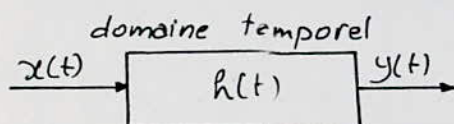 domaine temporel
x(t) h(t) y(t)